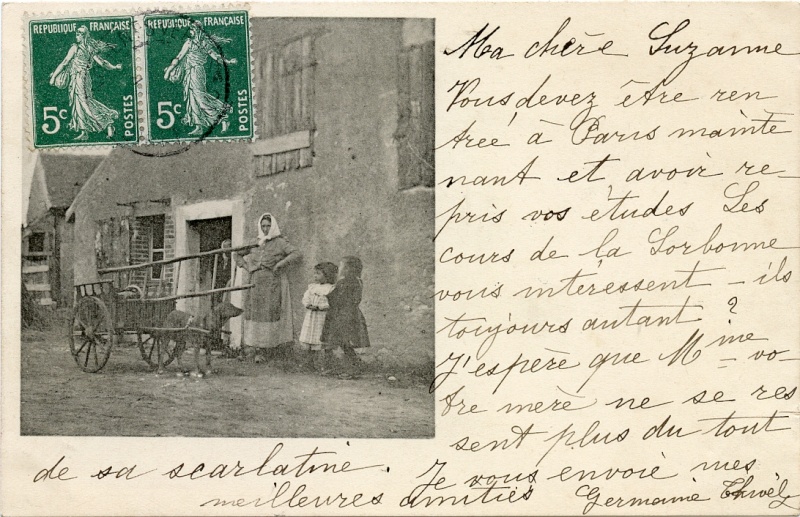 REPUBLIQUE FRANÇAISE
5c POSTES
REPUBLIQUE FRANÇAISE
5c POSTES
Ma chère Suzanne
Vous devez être ren
trée à Paris mainte
nant et avoir re-
pris vos études Les
cours de la Sorbonne
vous intéressent - ils
toujours autant ?
J'espère que Mme vo-
tre mère ne se res
sent plus du tout
de sa scarlatine. Je vous envoie mes
meilleures amitiés Germaine